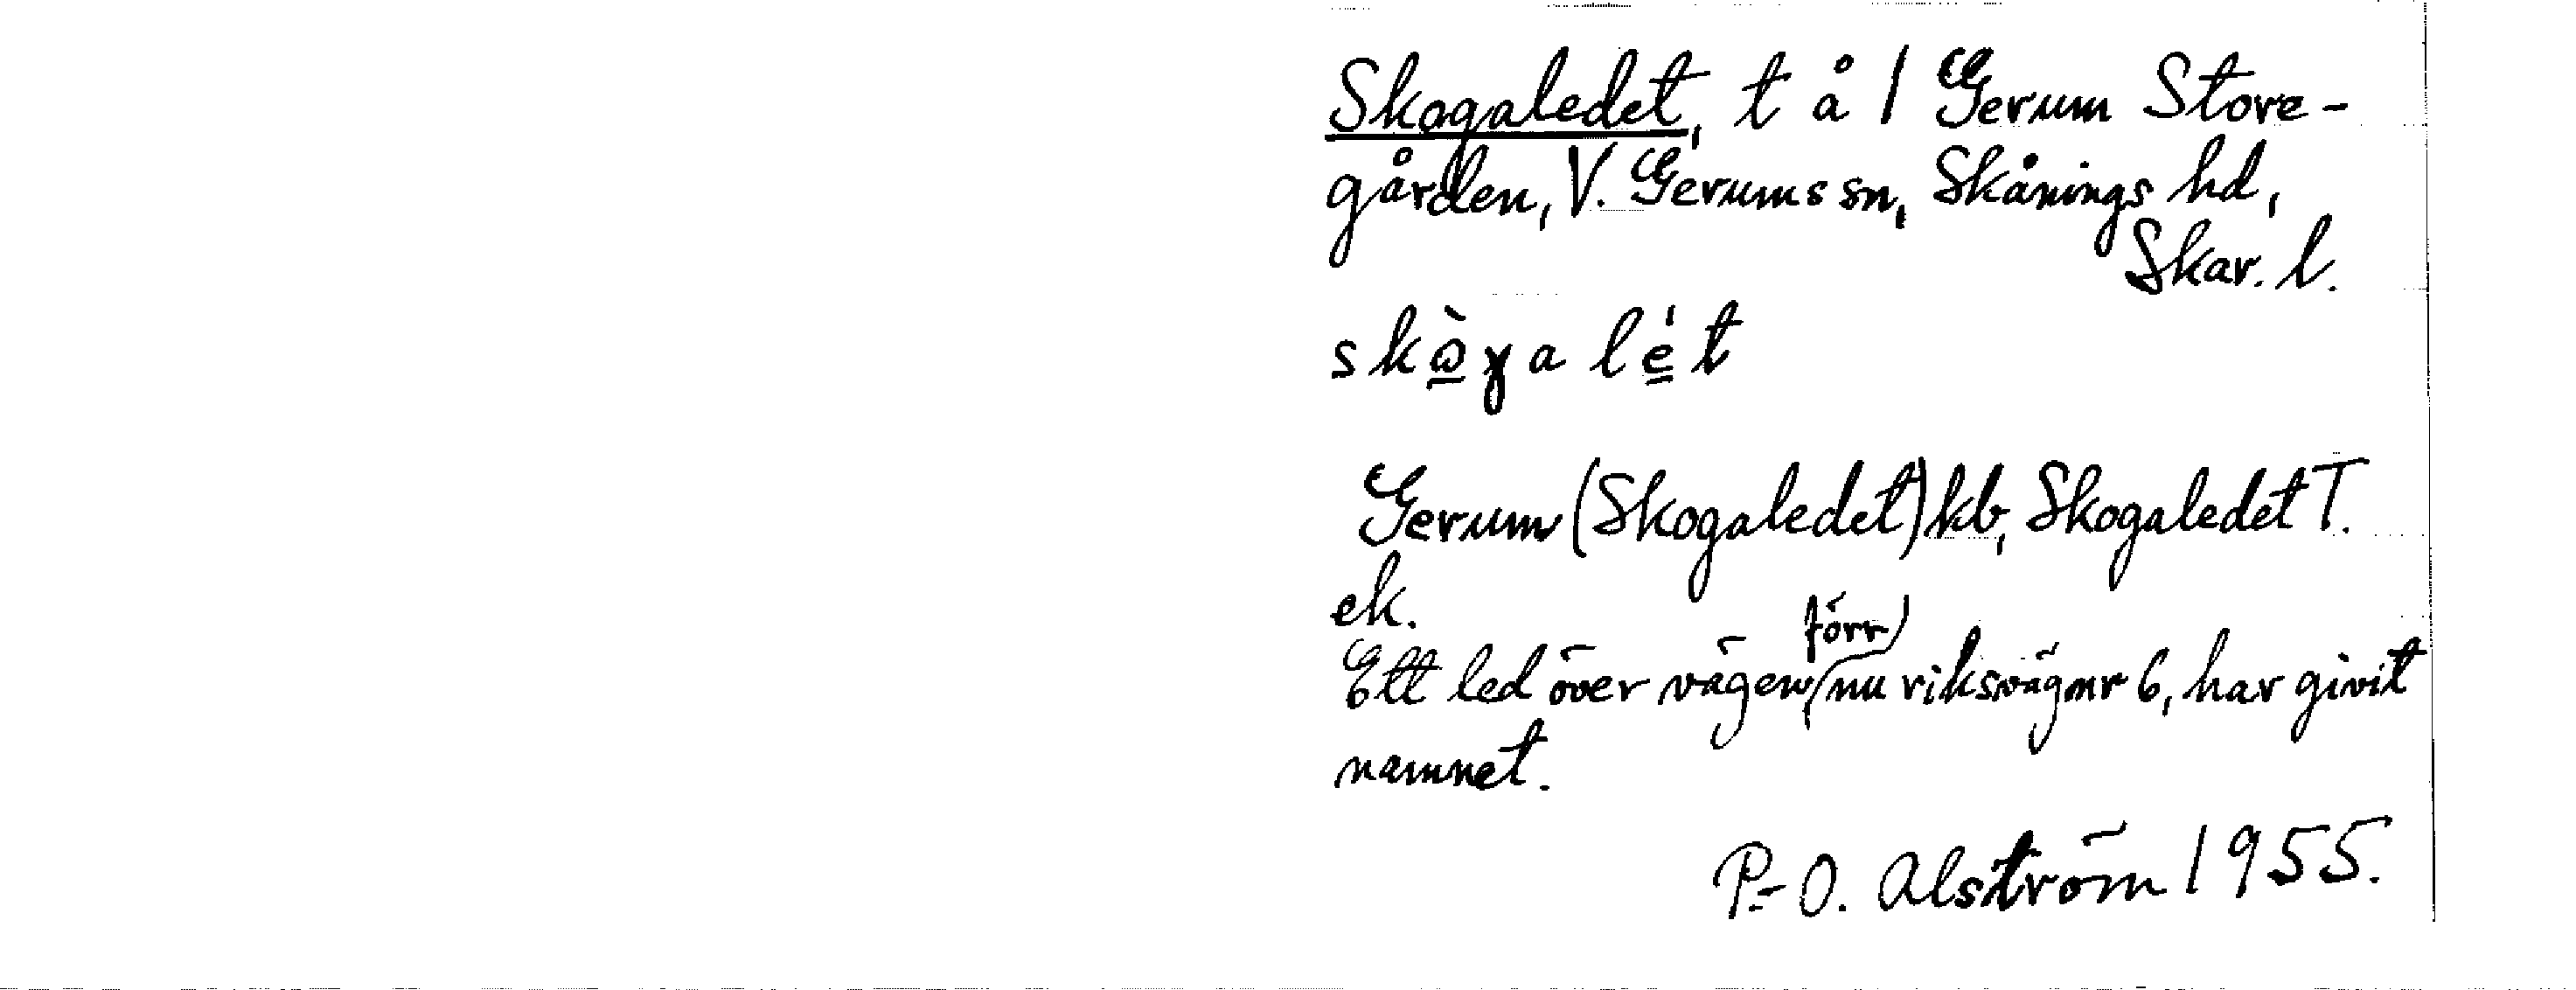 Skogaledet, t å 1 Gerum Store-
gården, V. Gerums sn, Skånings hd,
Skar. l.
skɷ̲̀ɣa lé̳t
Gerum (Skogaledet) kb, Skogaledet T.
ek.
förr
Ett led över vägen, nu riksväg nr 6, har givit
namnet.
P.-O. Alström 1955.